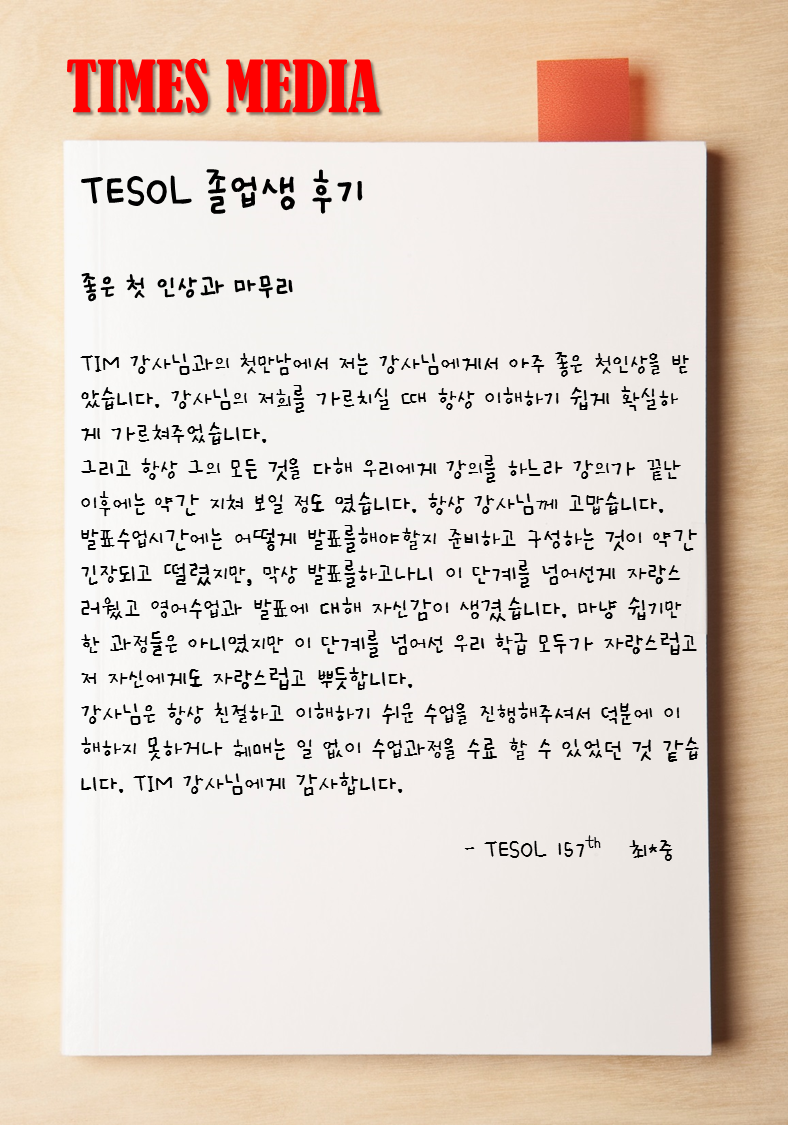 TIMES MEDIA
TESOL 졸업생 후기
좋은 첫 인상과 마무리
TIM 강사님과의 첫만남에서 저는 강사님에게서 아주 좋은 첫인상을 받
았습니다. 강사님의 저희를 가르치실 때 항상 이해하기 쉽게 확실하
게 가르쳐주었습니다.
그리고 항상 그의 모든 것을 다해 우리에게 강의를 하느라 강의가 끝난
이후에는 약간 지쳐 보일 정도 였습니다. 항상 강사님께 고맙습니다.
발표수업시간에는 어떻게 발표를해야할지 준비하고 구성하는 것이 약간
긴장되고 떨렸지만, 막상 발표를하고나니 이 단계를 넘어선게 자랑스
러웠고 영어수업과 발표에 대해 자신감이 생겼습니다. 마냥 쉽기만
한 과정들은 아니였지만 이 단계를 넘어선 우리 학급 모두가 자랑스럽고
저 자신에게도 자랑스럽고 뿌듯합니다.
강사님은 항상 친절하고 이해하기 쉬운 수업을 진행해주셔서 덕분에 이
해하지 못하거나 헤매는 일 없이 수업과정을 수료 할 수 있었던 것 같습
니다. TIM 강사님에게 감사합니다.
- TESOL 157th 최*중